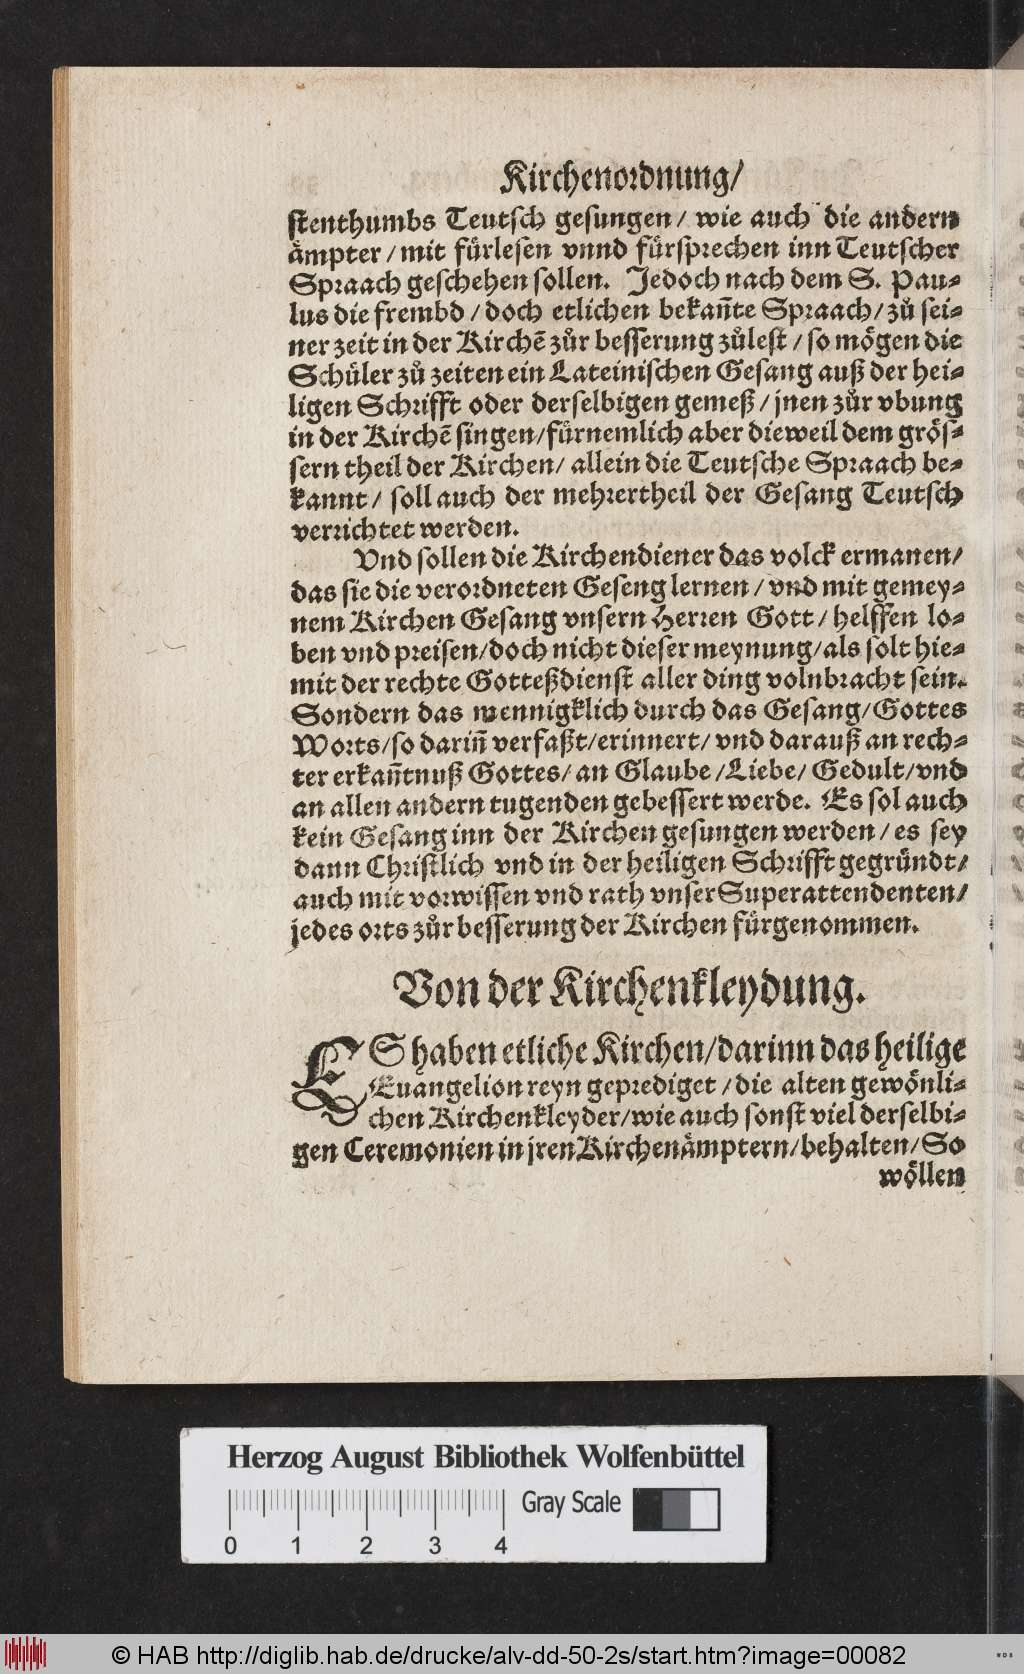 Kirchenordnung/
stenthumbs Teutsch gesungen / wie auch die andern
ämpter / mit fürlesen vnnd fürsprechen inn Teutscher
Spraach geschehen sollen. Jedoch nach dem S. Pau-
lus die frembd / doch etlichen bekañte Spraach / zů sei-
ner zeit in der Kirchẽ zůr besserung zůlest / so mögen die
Schüler zů zeiten ein Lateinischen Gesang auß der hei-
ligen Schrifft oder derselbigen gemeß / jnen zůr vbung
in der Kirchẽ singen/fürnemlich aber dieweil dem grös-
sern theil der Kirchen/ allein die Teutsche Spraach be-
kannt/ soll auch der mehrertheil der Gesang Teutsch
verrichtet werden.
Vnd sollen die Kirchendiener das volck ermanen/
das sie die verordneten Geseng lernen / vnd mit gemey-
nem Kirchen Gesang vnsern Herren Gott / helffen lo-
ben vnd preisen/doch nicht dieser meynung/als solt hie-
mit der rechte Gotteßdienst aller ding volnbracht sein.
Sondern das mennigklich durch das Gesang/Gottes
Worts/so dariñ verfaßt/erinnert/ vnd darauß an rech-
ter erkañtnuß Gottes/ an Glaube /Liebe/ Gedult/vnd
an allen andern tugenden gebessert werde. Es sol auch
kein Gesang inn der Kirchen gesungen werden / es sey
dann Christlich vnd in der heiligen Schrifft gegründt/
auch mit vorwissen vnd rath vnser Superattendenten/
jedes orts zůr besserung der Kirchen fürgenommen.
Von der Kirchenkleydung.
ES haben etliche Kirchen/darinn das heilige
Euangelion reyn geprediget / die alten gewönli-
chen Kirchenkleyder/wie auch sonst viel derselbi-
gen Ceremonien in jren Kirchenämptern/behalten/So
wöllen
Herzog August Bibliothek Wolfenbüttel
Gray Scale
0 1 2 3 4
© HAB http://diglib.hab.de/drucke/alv-dd-50-2s/start.htm?image=00082